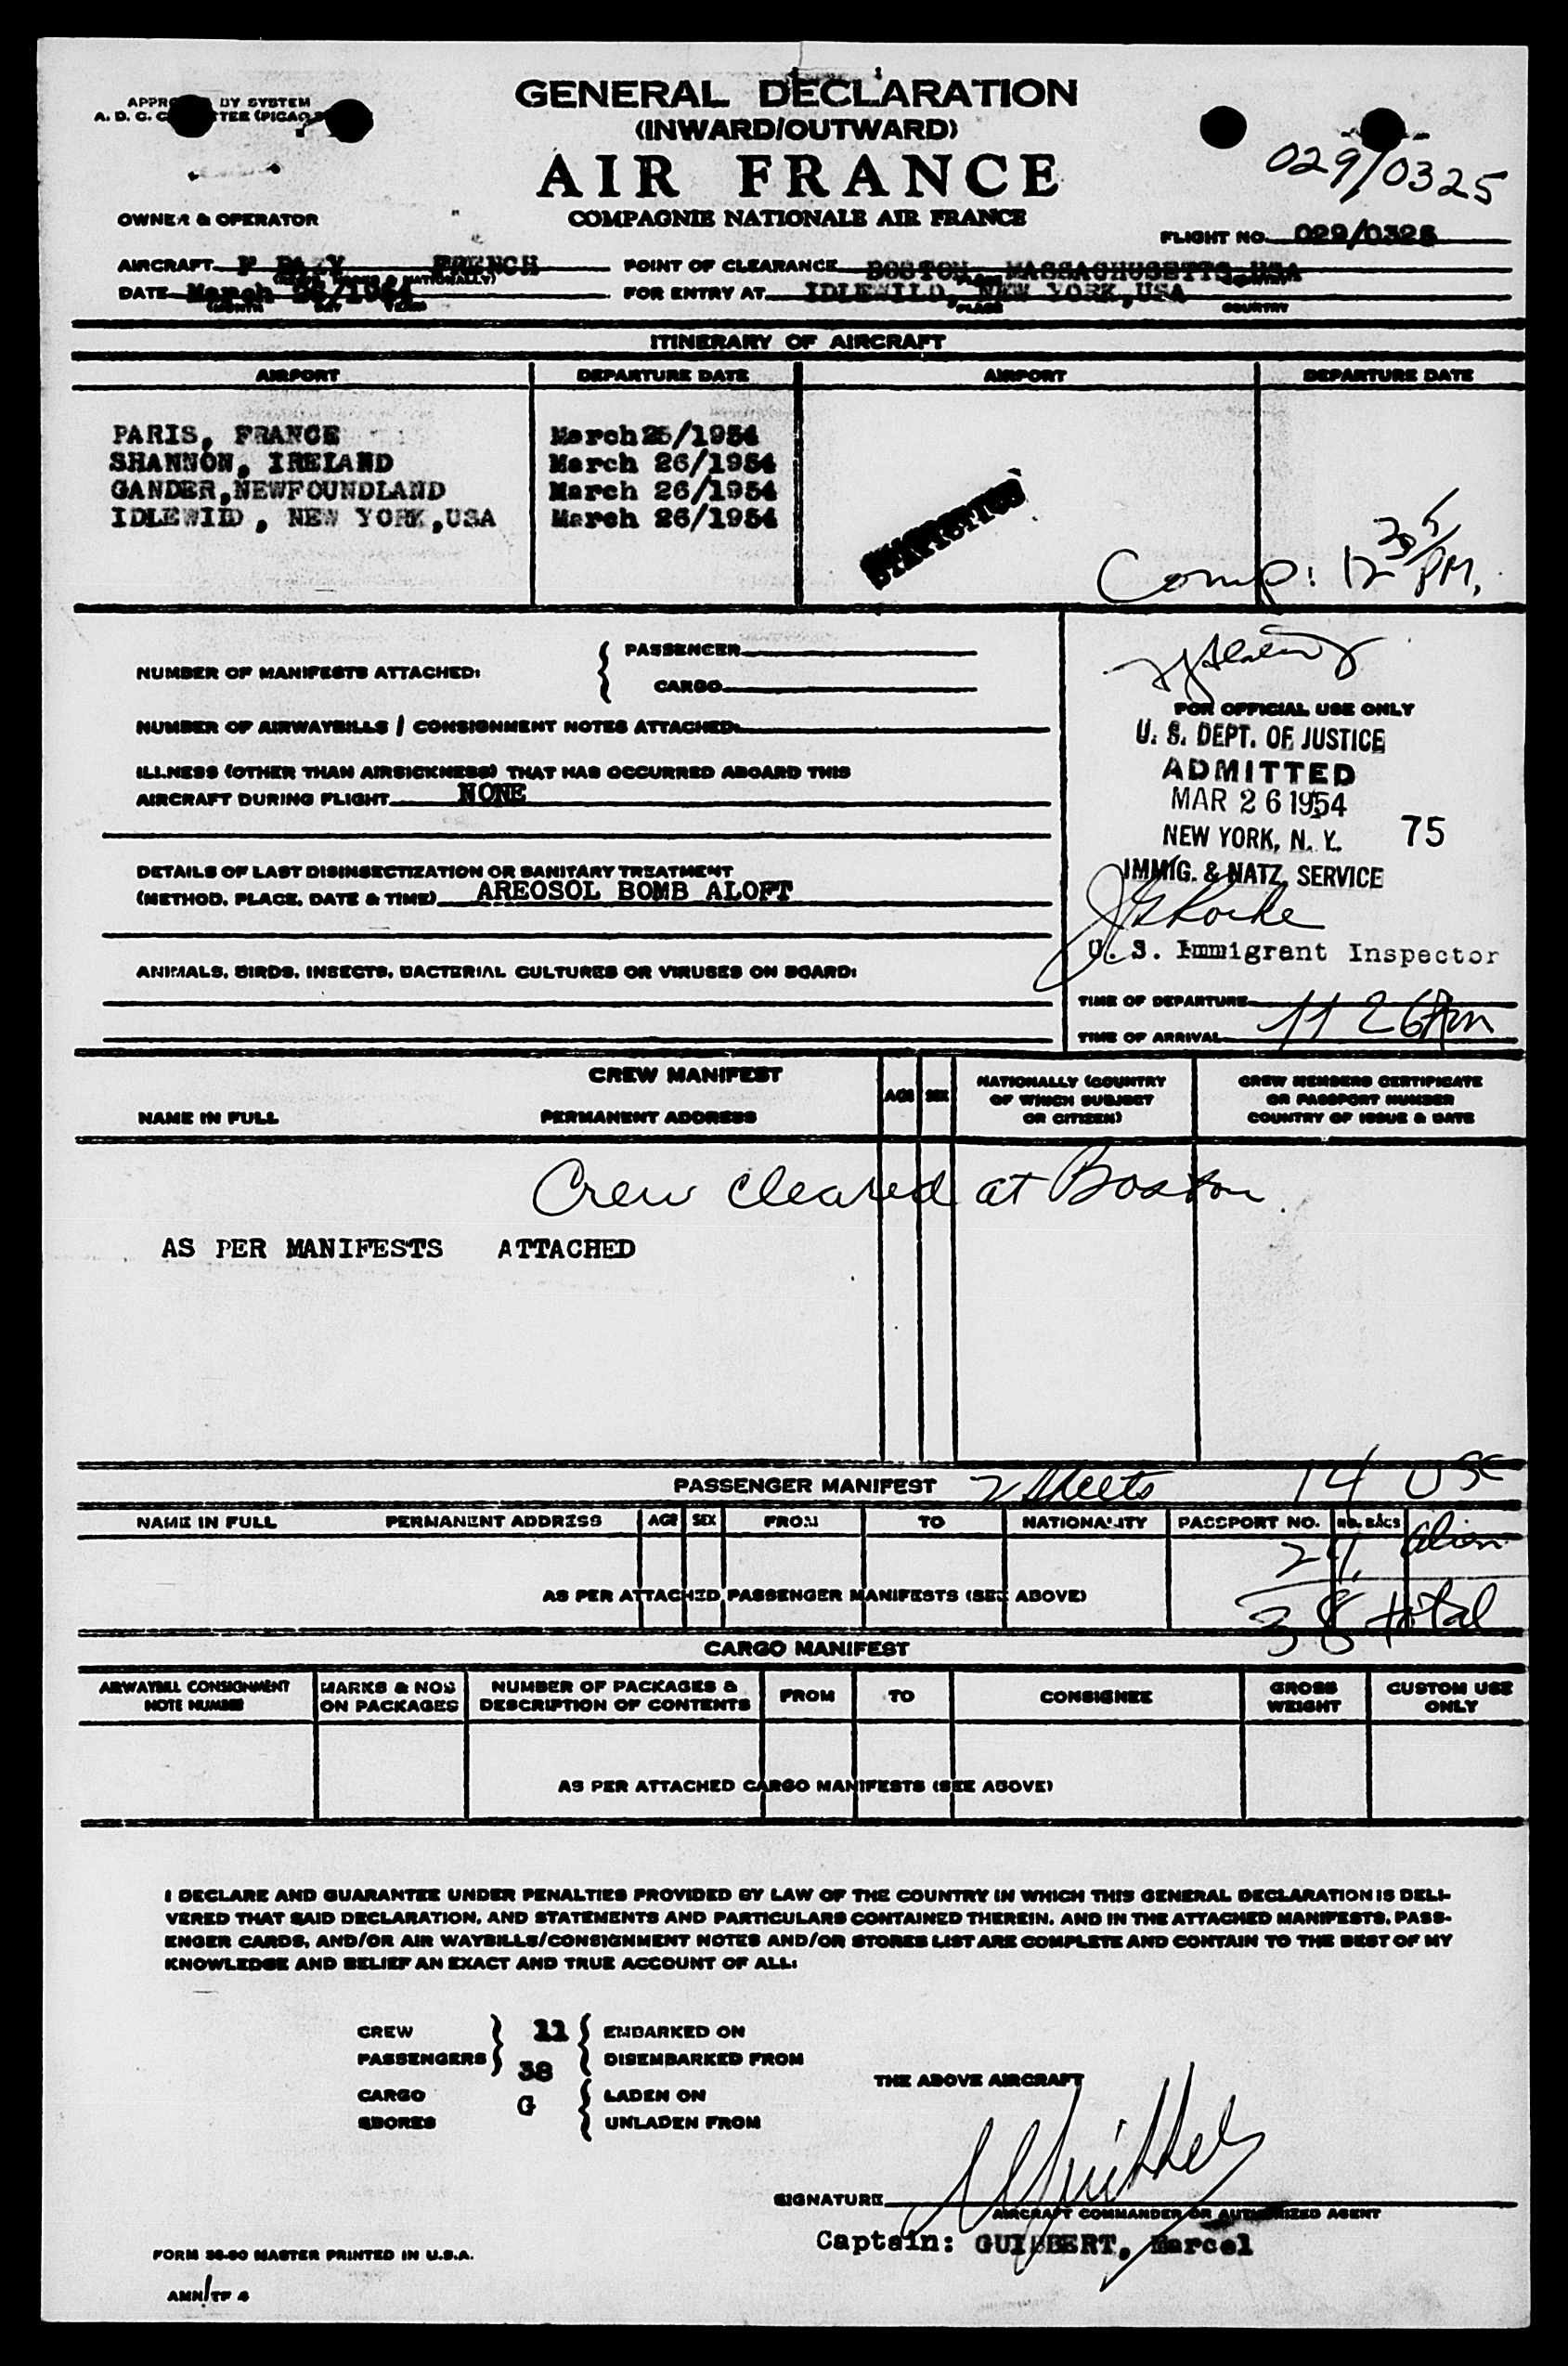 GENERAL DECLARATION
(INWARD/OUTWARD)
AIR FRANCE
COMPAGNIE NATIONALE AIR FRANCE
BY SYSTEM
A. D. C.
029/0325
OWNER & OPERATOR
FLIGHT NO. 029/0325
AIRCRAFT F FRENCH
POINT OF CLEARANCE BOSTON MASSACHUSETTS USA
DATE March
FOR ENTRY AT IDLEWILD, NEW YORK, USA
(MONTH DAY YEAR)
PLACE COUNTRY
ITINERARY OF AIRCRAFT
AIRPORT DEPARTURE DATE AIRPORT DEPARTURE DATE
PARIS, FRANCE March 25/1954
SHANNON, IRELAND March 26/1954
GANDER,NEWFOUNDLAND March 26/1954
IDLEWILD, NEW YORK,USA March 26/1954
Comp: 12 PM.
NUMBER OF MANIFESTS ATTACHED:
PASSENGER
CARGO
NUMBER OF AIRWAYBILLS / CONSIGNMENT NOTES ATTACHED:
ILLNESS (OTHER THAN AIRSICKNESS) THAT HAS OCCURRED ABOARD THIS
AIRCRAFT DURING FLIGHT NONE
DETAILS OF LAST DISINSECTIZATION OR SANITARY TREATMENT
(METHOD, PLACE, DATE & TIME) AREOSOL BOMB ALOFT
ANIMALS, BIRDS, INSECTS, BACTERIAL CULTURES OR VIRUSES ON BOARD:
FOR OFFICIAL USE ONLY
U. S. DEPT. OF JUSTICE
ADMITTED
MAR 26 1954
NEW YORK, N. Y. 75
IMMIG. & NATZ. SERVICE
U. S. Immigrant Inspector
TIME OF DEPARTURE
TIME OF ARRIVAL 11 26 Am
CREW MANIFEST
NAME IN FULL PERMANENT ADDRESS AGE SEX
NATIONALLY (COUNTRY
OF WHICH SUBJECT
OR CITIZEN)
CREW MEMBERS CERTIFICATE
OR PASSPORT NUMBER
COUNTRY OF ISSUE & DATE
Crew cleared at Boston
AS PER MANIFESTS ATTACHED
PASSENGER MANIFEST 2 sheets 14 USC
NAME IN FULL PERMANENT ADDRESS AGE SEX FROM TO NATIONALITY PASSPORT NO. NO. BAGS
24 alien
AS PER ATTACHED PASSENGER MANIFESTS (SEE ABOVE)
38 total
CARGO MANIFEST
AIRWAYBILL CONSIGNMENT
NOTE NUMBER
MARKS & NOS
ON PACKAGES
NUMBER OF PACKAGES &
DESCRIPTION OF CONTENTS
FROM TO CONSIGNEE
GROSS
WEIGHT
CUSTOM USE
ONLY
AS PER ATTACHED CARGO MANIFESTS (SEE ABOVE)
I DECLARE AND GUARANTEE UNDER PENALTIES PROVIDED BY LAW OF THE COUNTRY IN WHICH THIS GENERAL DECLARATION IS DELI-
VERED THAT SAID DECLARATION, AND STATEMENTS AND PARTICULARS CONTAINED THEREIN, AND IN THE ATTACHED MANIFESTS, PASS-
ENGER CARDS, AND/OR AIR WAYBILLS/CONSIGNMENT NOTES AND/OR STORES LIST ARE COMPLETE AND CONTAIN TO THE BEST OF MY
KNOWLEDGE AND BELIEF AN EXACT AND TRUE ACCOUNT OF ALL:
CREW 11 EMBARKED ON
PASSENGERS 38 DISEMBARKED FROM
THE ABOVE AIRCRAFT
CARGO G LADEN ON
SBORES UNLADEN FROM
SIGNATURE
AIRCRAFT COMMANDER OR AUTHORIZED AGENT
Captain: GUIBBERT, Marcel
FORM 36-50 MASTER PRINTED IN U.S.A.
AMN/TF 4